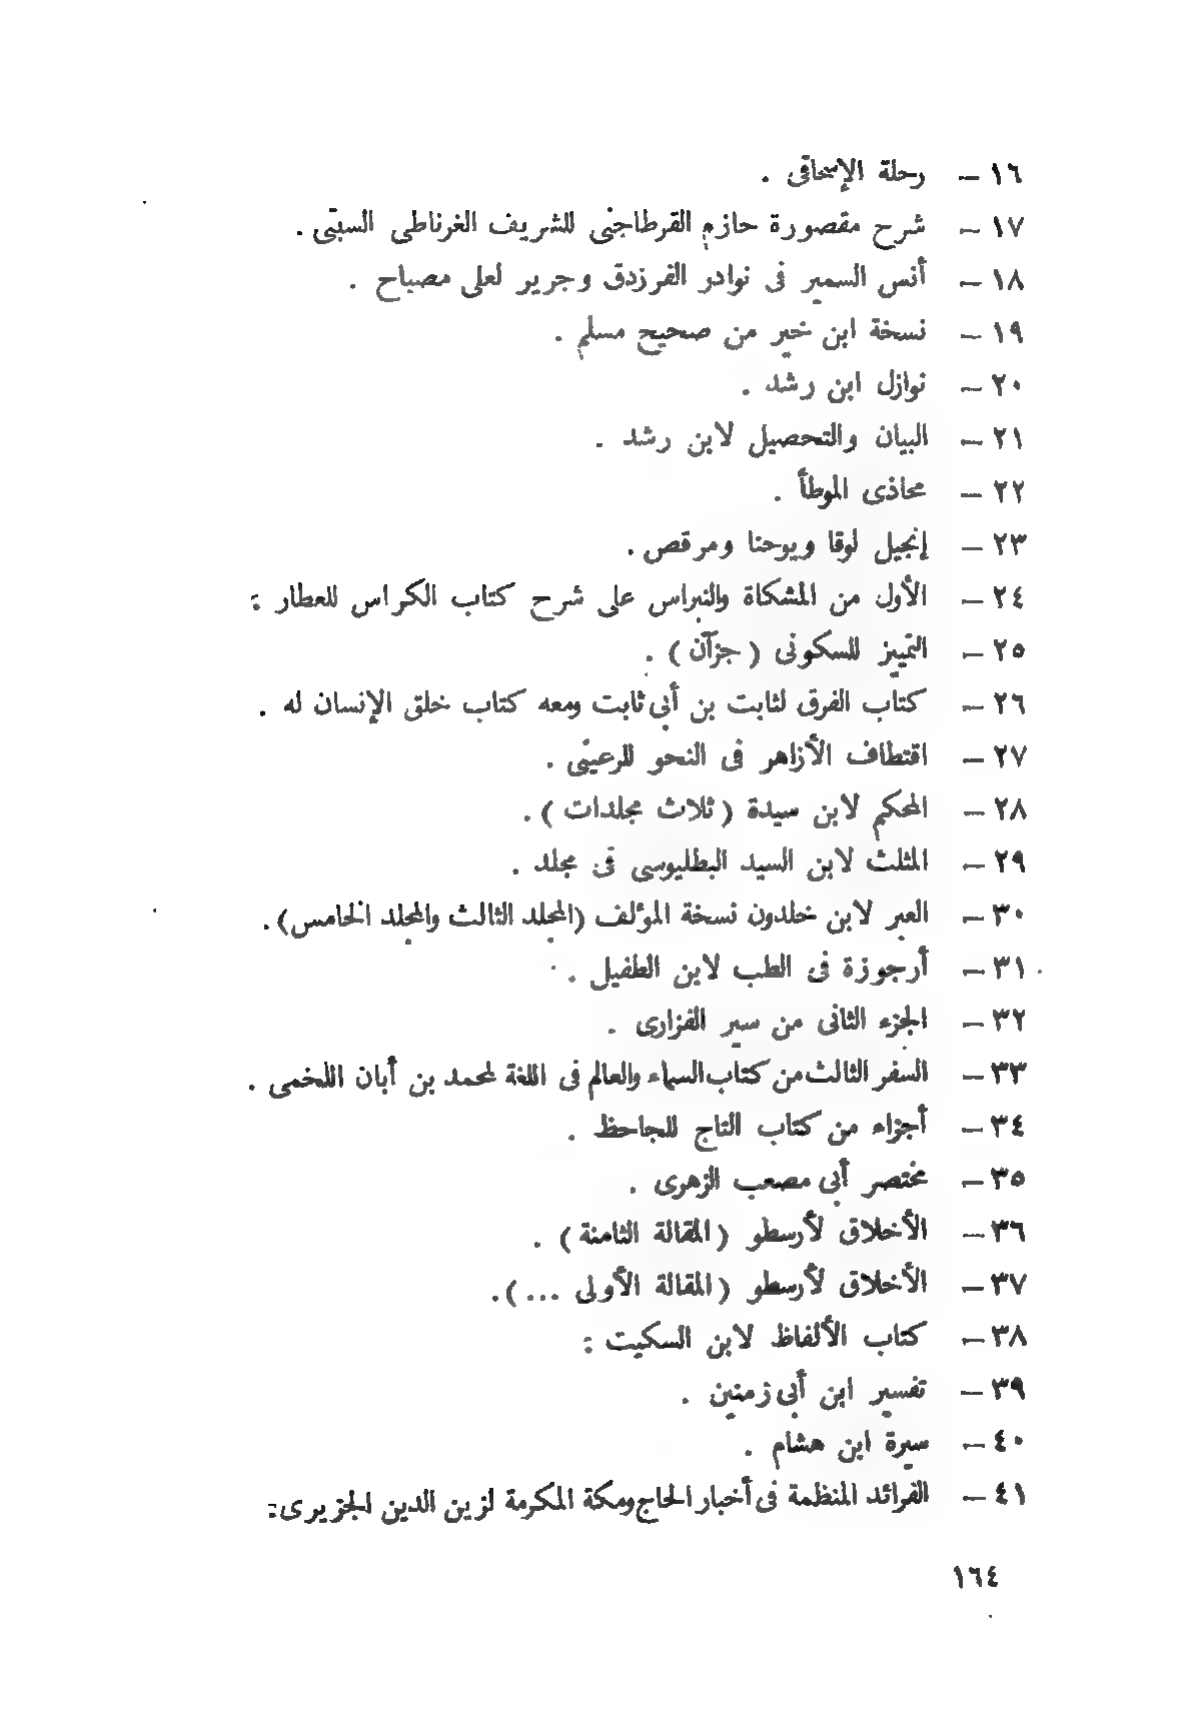 ١٦ – رحلة الإسحاقى .
١٧ – شرح مقصورة حازم القرطاجنى للشريف الغرناطى السبتى .
١٨ – أنس السمير فى نوادر الفرزدق وجرير لعلى مصباح .
١٩ – نسخة ابن خير من صحيح مسلم .
٢٠ – نوازل ابن رشد .
٢١ – البيان والتحصيل لابن رشد .
٢٢ – محاذى الموطأ .
٢٣ – إنجيل لوقا ويوحنا ومرقص .
٢٤ – الأول من المشكاة والنبراس على شرح كتاب الكراس للعطار :
٢٥ – التمييز للسكونى ( جزآن ) .
٢٦ – كتاب الفرق لثابت بن أبى ثابت ومعه كتاب خلق الإنسان له .
٢٧ – اقتطاف الأزاهر فى النحو للرعينى .
٢٨ – المحكم لابن سيدة ( ثلاث مجلدات ) .
٢٩ – المثلث لابن السيد البطليوسى فى مجلد .
٣٠ – العبر لابن خلدون نسخة المؤلف (المجلد الثالث والمجلد الخامس) .
٣١ – أرجوزة فى الطب لابن الطفيل .
٣٢ – الجزء الثانى من سير الفزارى .
٣٣ – السفر الثالث من كتاب السماء والعالم فى اللغة لمحمد بن أبان اللخمى .
٣٤ – أجزاء من كتاب التاج للجاحظ .
٣٥ – مختصر أبى مصعب الزهرى .
٣٦ – الأخلاق لأرسطو ( المقالة الثامنة ) .
٣٧ – الأخلاق لأرسطو ( المقالة الأولى ... ) .
٣٨ – كتاب الألفاظ لابن السكيت :
٣٩ – تفسير ابن أبى زمنين .
٤٠ – سيرة ابن هشام .
٤١ – الفرائد المنظمة فى أخبار الحاج ومكة المكرمة لزين الدين الجزيرى :
١٦٤